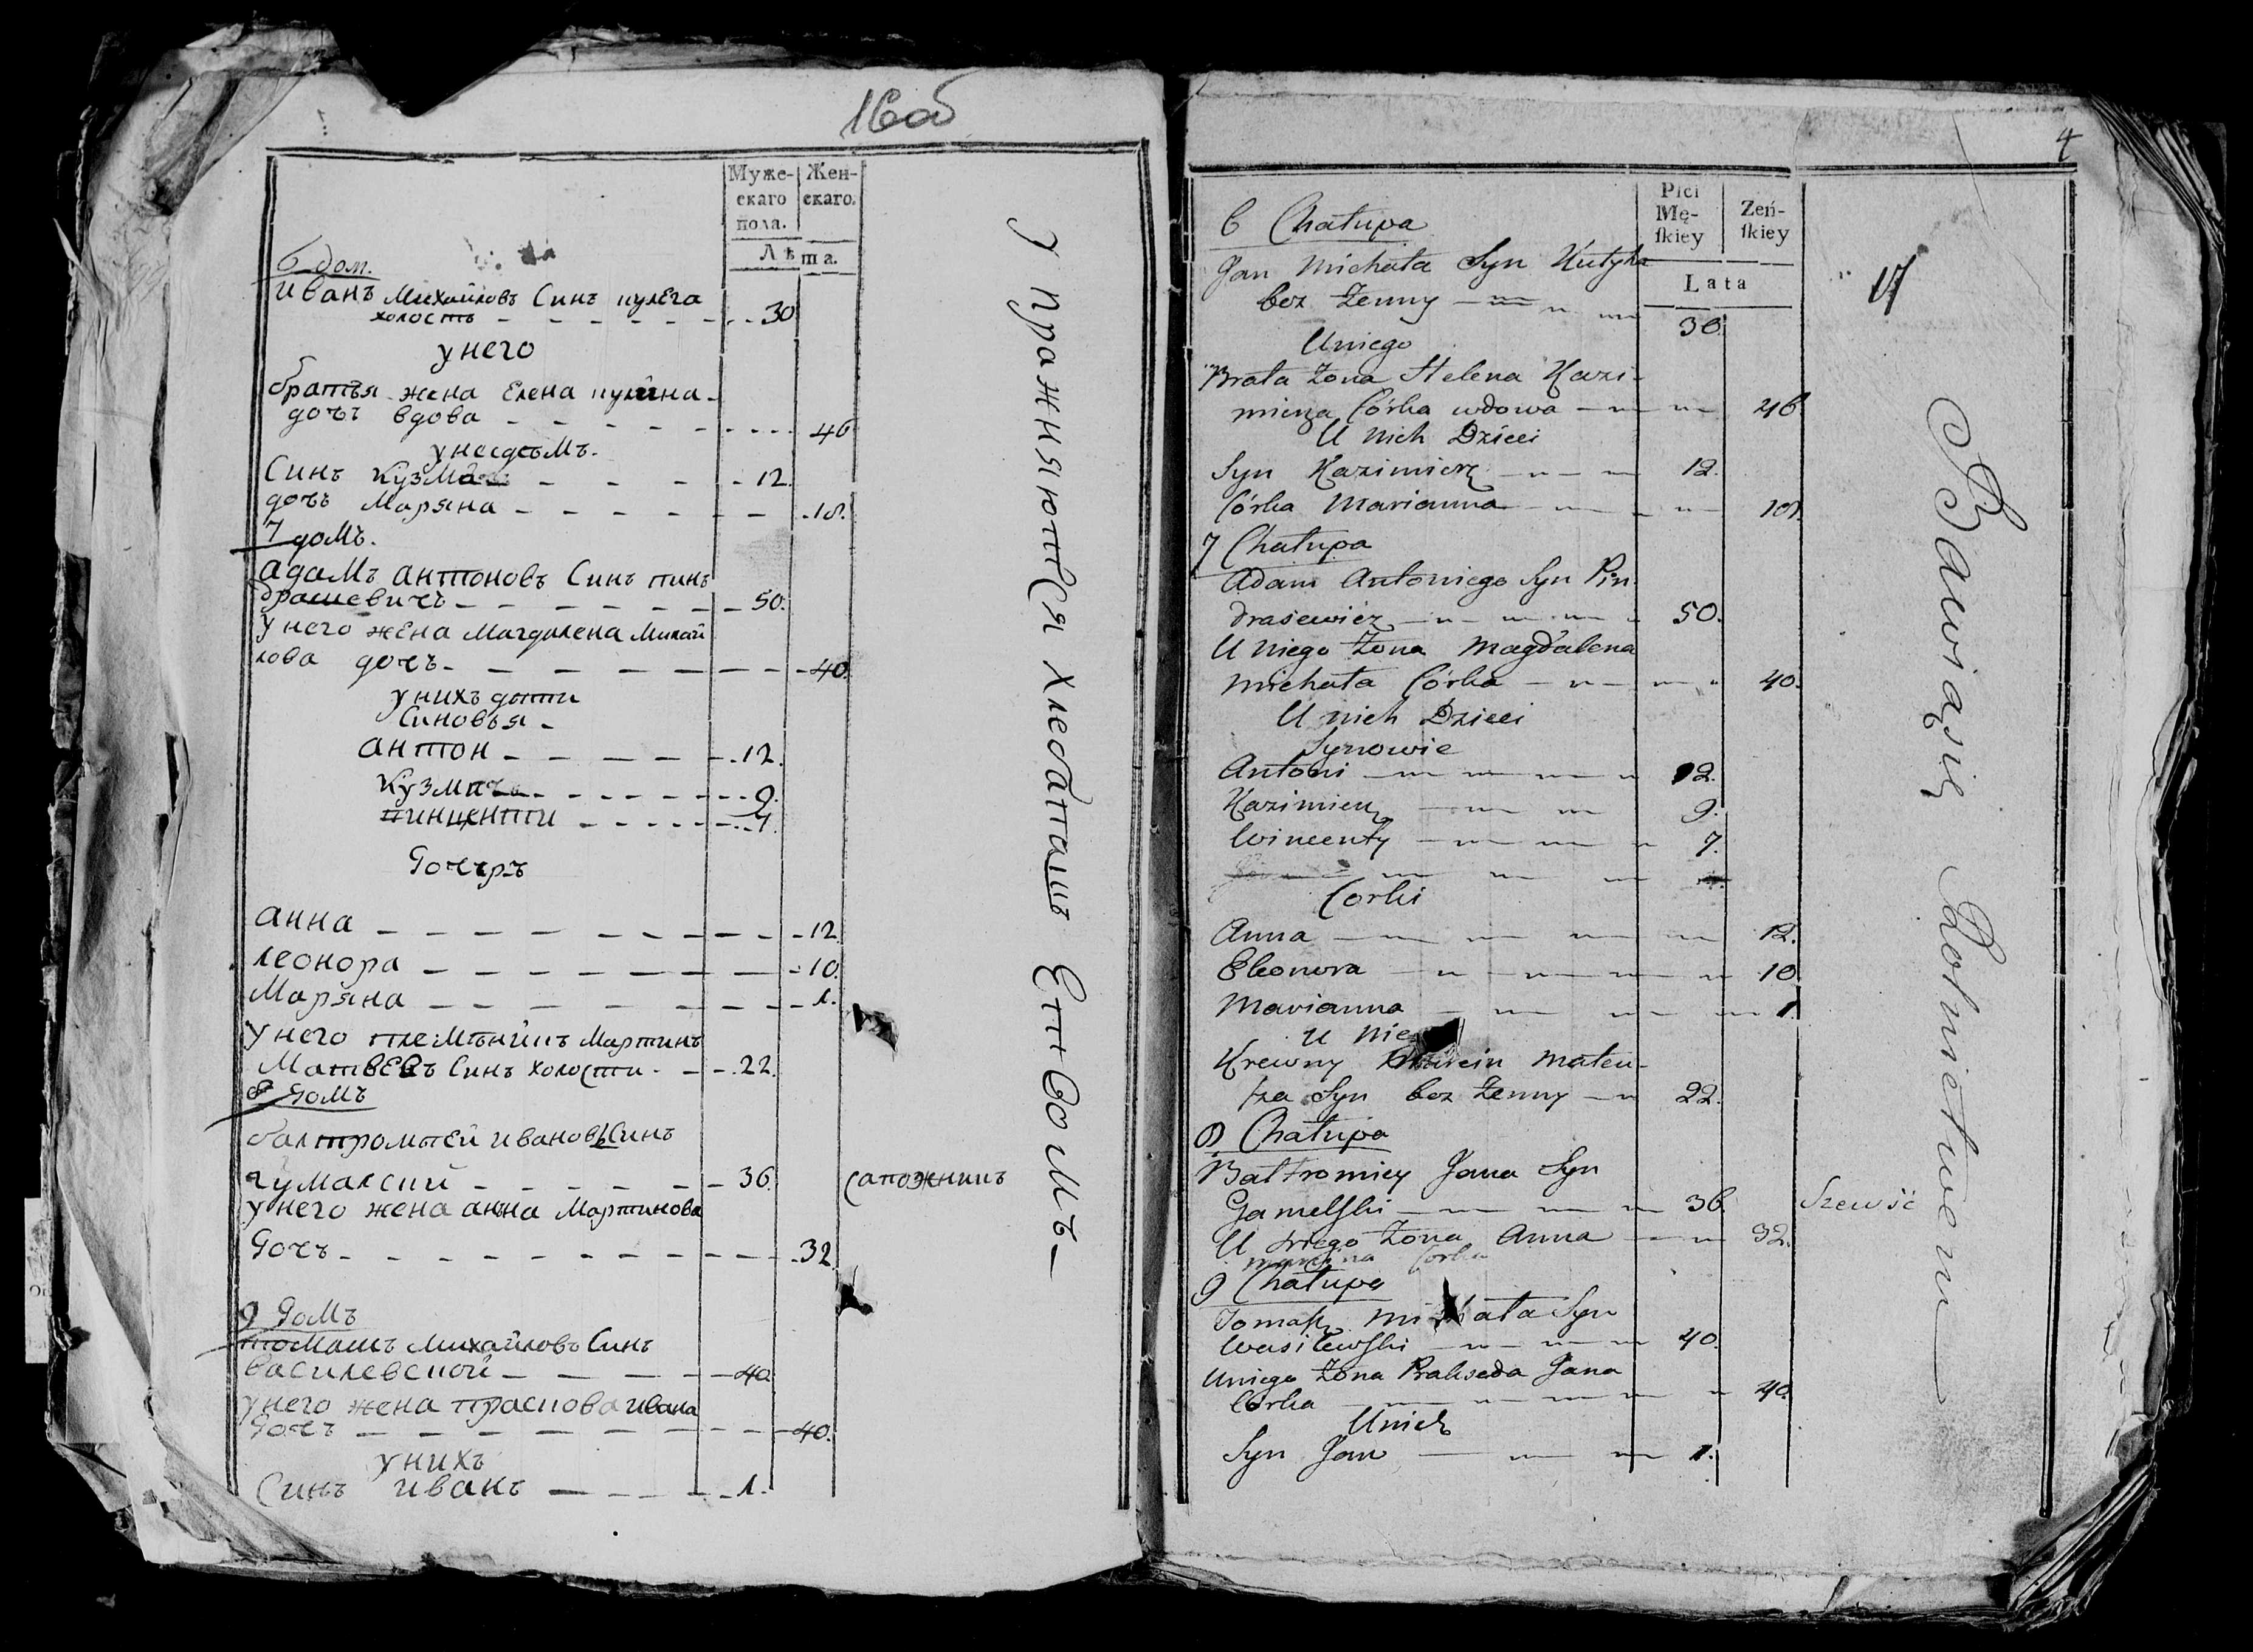 16об
Муже-
скаго
пола.
Жен-
скаго.
Лѣта.
6 дом.
иванъ Михайловъ Синъ кулега
холостъ 30
у него
братья жена Елена
дочъ вдова 46
Синъ Кузма 12.
дочъ Маряна 18.
7 домъ.
адамъ антоновъ Синъ пин
драшевичъ 50.
У него жена Магдалена Михай
лова дочъ 40.
у нихъ дѣти
Синовья
антон 12.
Кузмичъ 9.
винценти 7.
дочеръ
анна 12.
леонора 10.
Маряна 1.
У него племѣникъ Мартинъ
Матвеевъ Синъ холости 22.
8 домъ
балтромпей ивановъ Синъ
36.
сапожникъ
у него жена анна Мартинова
дочъ 32.
9 домъ
томашъ Михайловъ Синъ
василевской 40
у него жена праскова ивана
дочъ 40.
у нихъ
Синъ иванъ 1.
Упражняются хлебопашеством
4
Płci
Mę-
ſkiey
Zeń-
ſkiey
Lata
17
6 Chałupa
Jan Michała Syn Kutyha
bez Zenny 30.
U niego
Brata Zona Helena Kazi-
mierza Córka wdowa 46
U nich Dzieci
Syn Kazimierz 12.
Córka Marianna 18.
7 Chałupa
Adam Antoniego Syn Pin
drasewicz 50.
U niego Zona Magdalena
Michała Córka 40.
U nich Dzieci
Synowie
Antoni 12.
Kazimierz 9.
Wincenty 7.
Corki
Anna 12.
Eleonora 10.
Marianna 1.
U nie
Krewny Marcin Mateu-
sza Syn bez Zenny 22.
8 Chałupa
Bałtromiey Jana Syn
Gamelſki 36.
Szewść
U niego Zona Anna 32.
Marcina Corka
9 Chałupa
Tomaſz Michała Syn
Wasilewſki 40.
U niego Zona Prakseda Jana
Córka 40.
U nich
Syn Jan 1.
Bawiąsię Rolnictwem